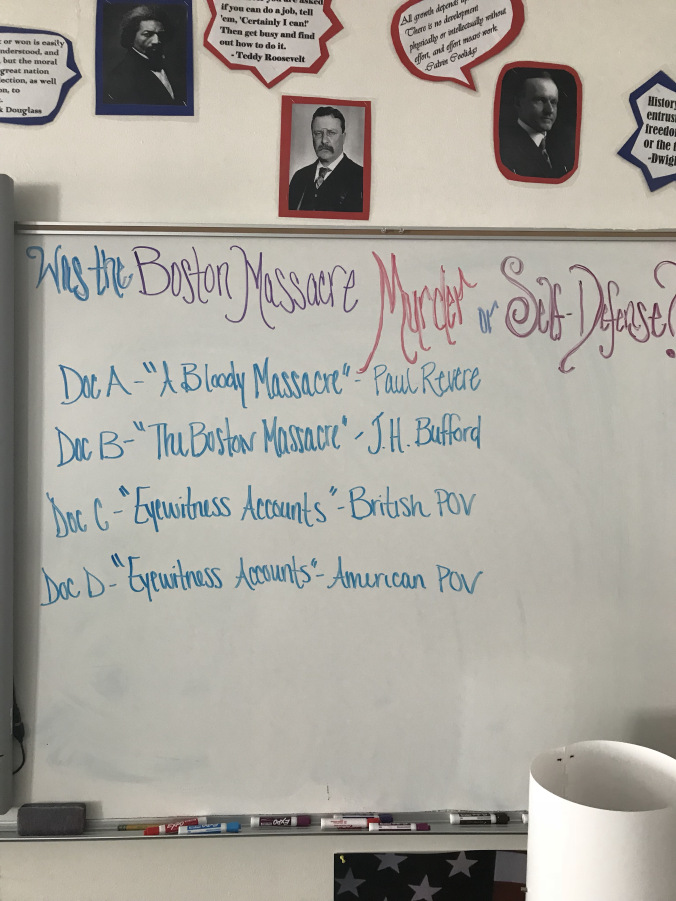 or won is easily
understood, and
but the moral
great nation
lection, as well
on, to
Douglass
you are asked
if you can do a job, tell
'em, 'Certainly I can!'
Then get busy and find
out how to do it.
- Teddy Roosevelt
All growth depends
There is no development
physically or intellectually without
effort, and effort means work.
- Calvin Coolidge
History
entrust
freedom
or the
-Dwig
Was the Boston Massacre Murder or Self-Defense?
Doc A - "A Bloody Massacre" - Paul Revere
Doc B - "The Boston Massacre" - J.H. Bufford
Doc C - "Eyewitness Accounts" - British POV
Doc D - "Eyewitness Accounts" - American POV
EXPO